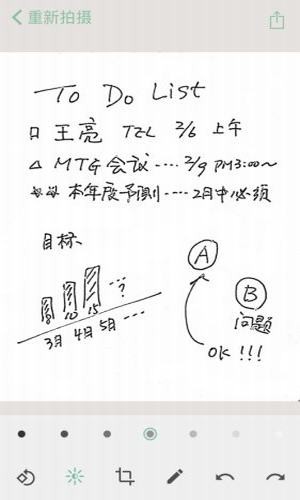 重新拍摄
To Do List
□ 王亮 TEL 2/6 上午
△ MTG 会议‥‥ 2/9 PM3:00~
本年度予測‥‥ 2月中必須
目标、
…?
8 10 15
3月 4月 5月 …
A
B
问题
OK !!!